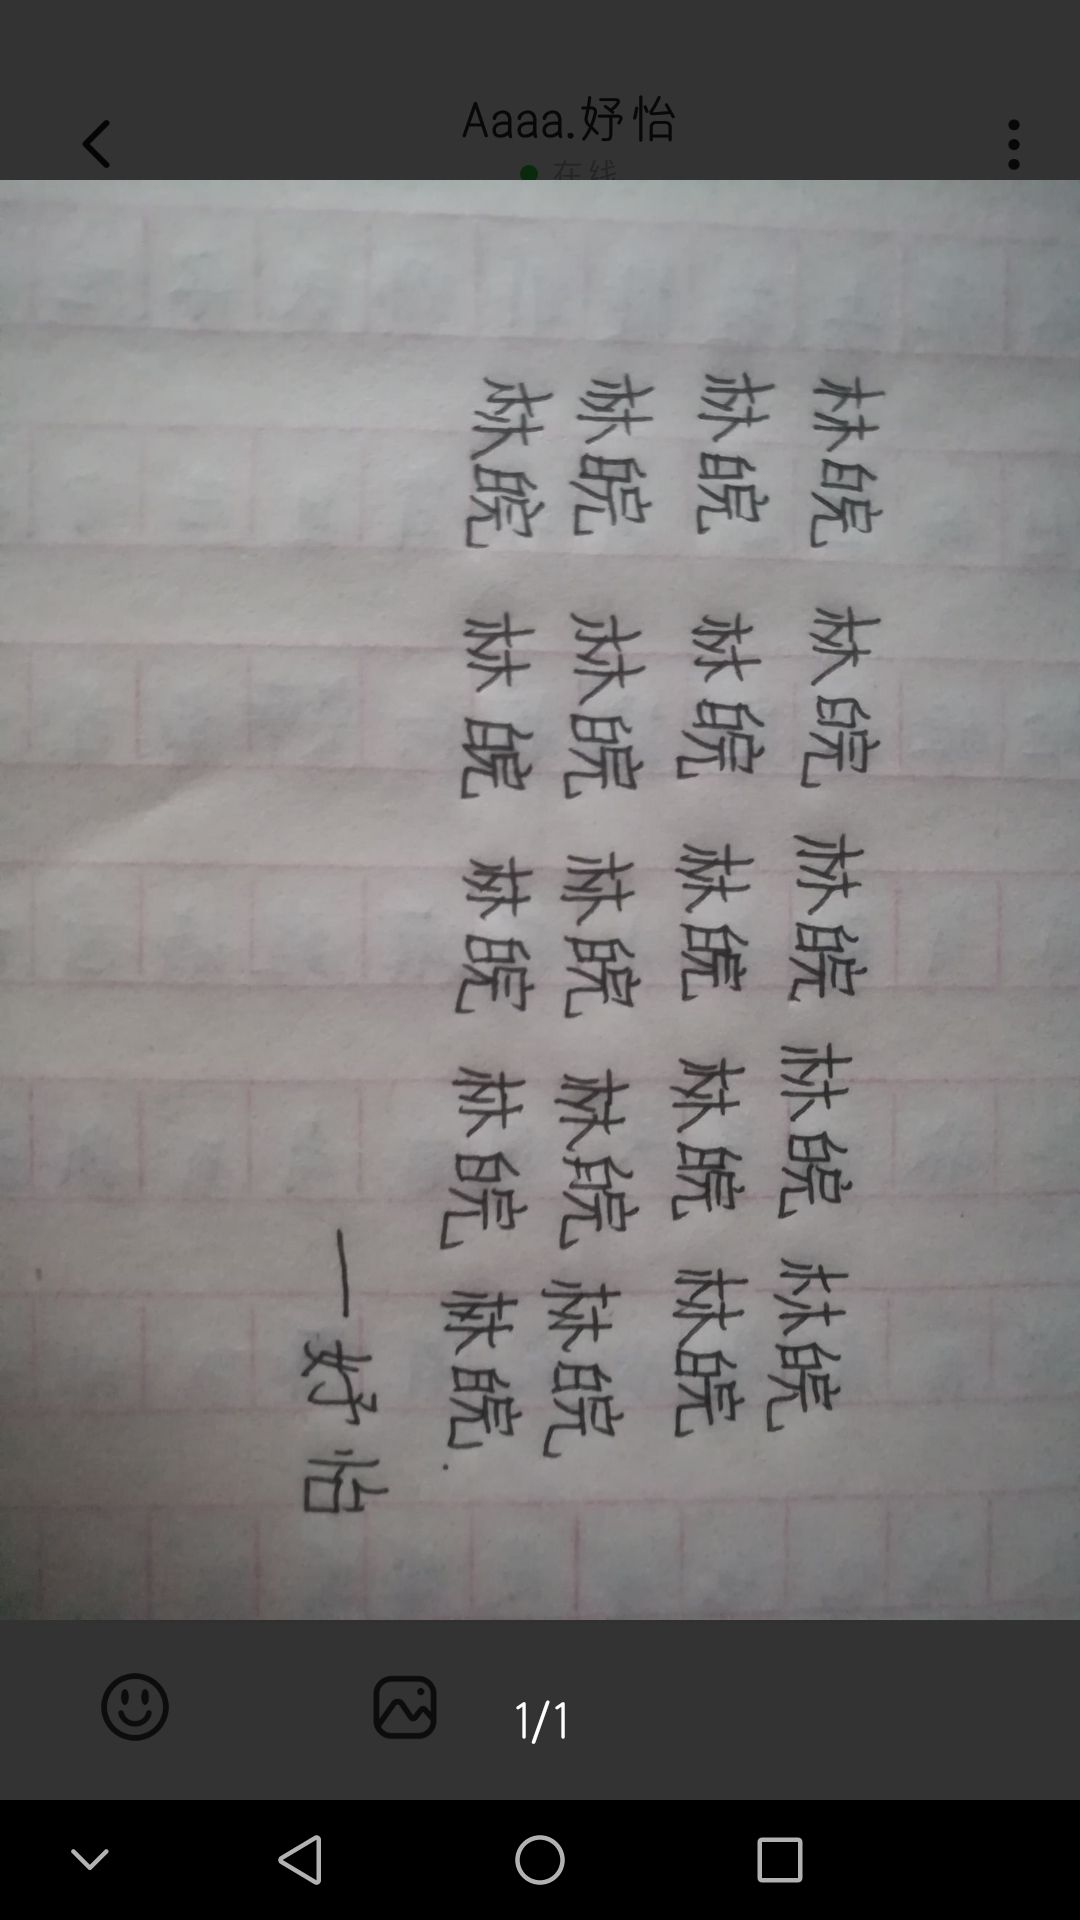 Aaaa.妤怡
在线
林皖 林皖 林皖 林皖 林皖
林皖 林皖 林皖 林皖 林皖
林皖 林皖 林皖 林皖 林皖
林皖 林皖 林皖 林皖 林皖.
—妤怡
1/1